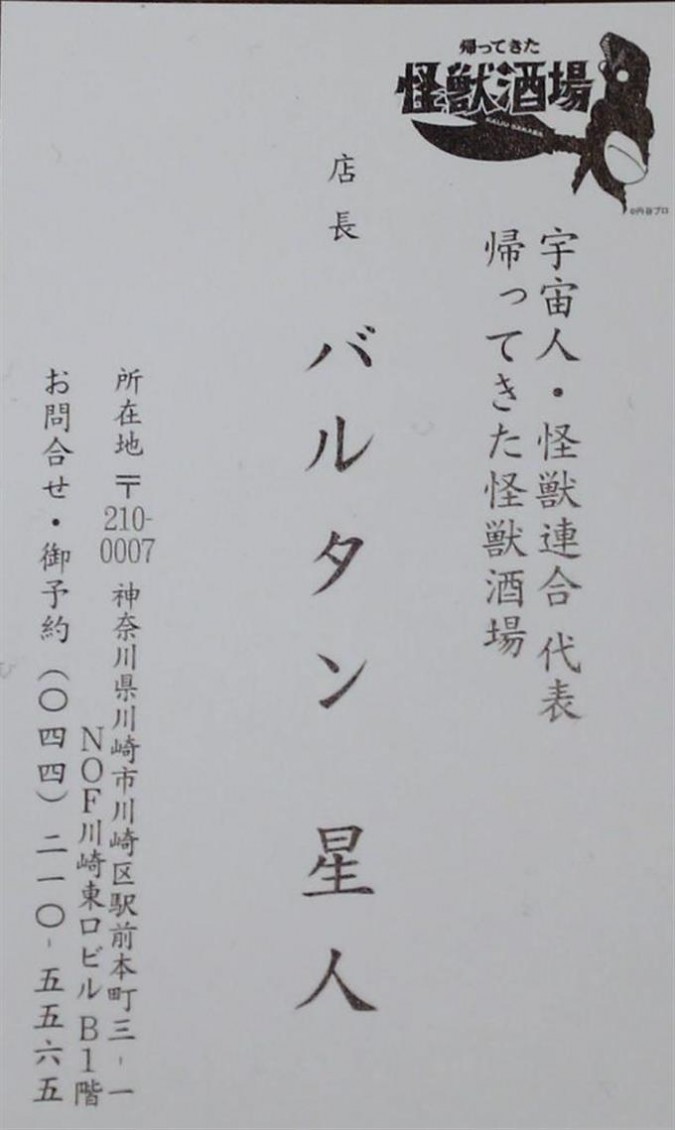 帰ってきた
怪獣酒場
KAIJU SAKABA
©円谷プロ
宇宙人・怪獣連合 代表
帰ってきた怪獣酒場
店長 バルタン 星人
所在地 〒210-0007 神奈川県川崎市川崎区駅前本町三-一
NOF川崎東口ビル B1階
お問合せ・御予約(〇四四)二一〇-五五六五